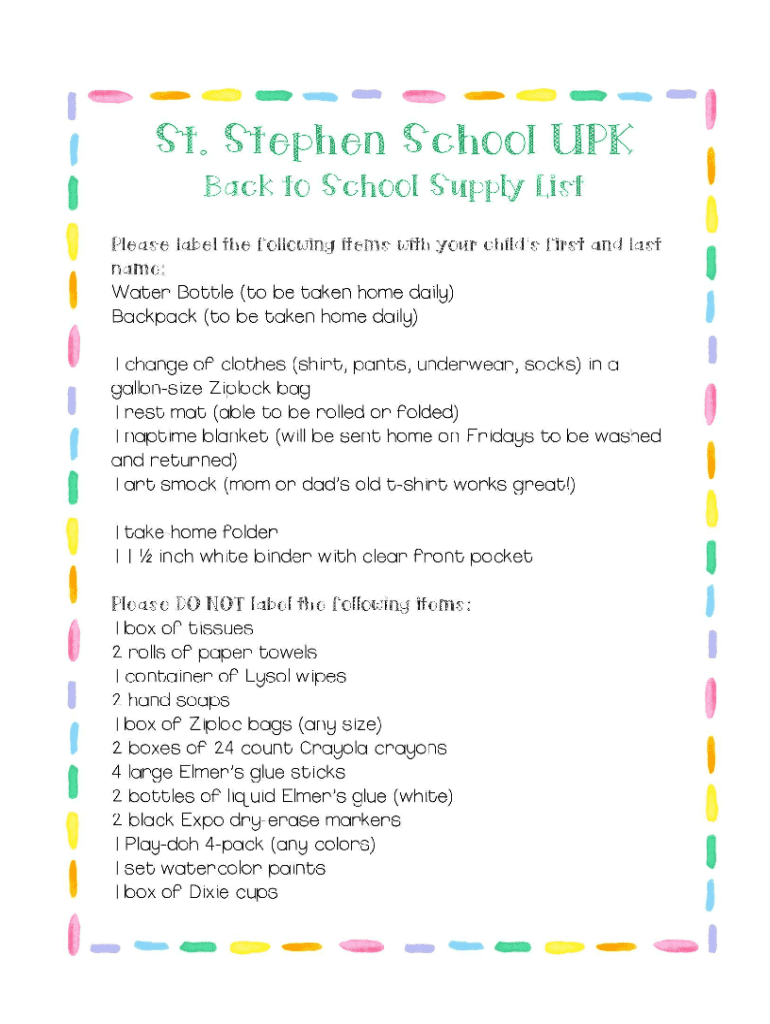 St. Stephen School UPK
Back to School Supply List
Please label the following items with your child's first and last
name:
Water Bottle (to be taken home daily)
Backpack (to be taken home daily)
1 change of clothes (shirt, pants, underwear, socks) in a
gallon-size Ziplock bag
1 rest mat (able to be rolled or folded)
1 naptime blanket (will be sent home on Fridays to be washed
and returned)
1 art smock (mom or dad's old t-shirt works great!)
1 take-home folder
1 1 ½ inch white binder with clear front pocket
Please DO NOT label the following items:
1 box of tissues
2 rolls of paper towels
1 container of Lysol wipes
2 hand soaps
1 box of Ziploc bags (any size)
2 boxes of 24 count Crayola crayons
4 large Elmer's glue sticks
2 bottles of liquid Elmer's glue (white)
2 black Expo dry-erase markers
1 Play-doh 4-pack (any colors)
1 set watercolor paints
1 box of Dixie cups